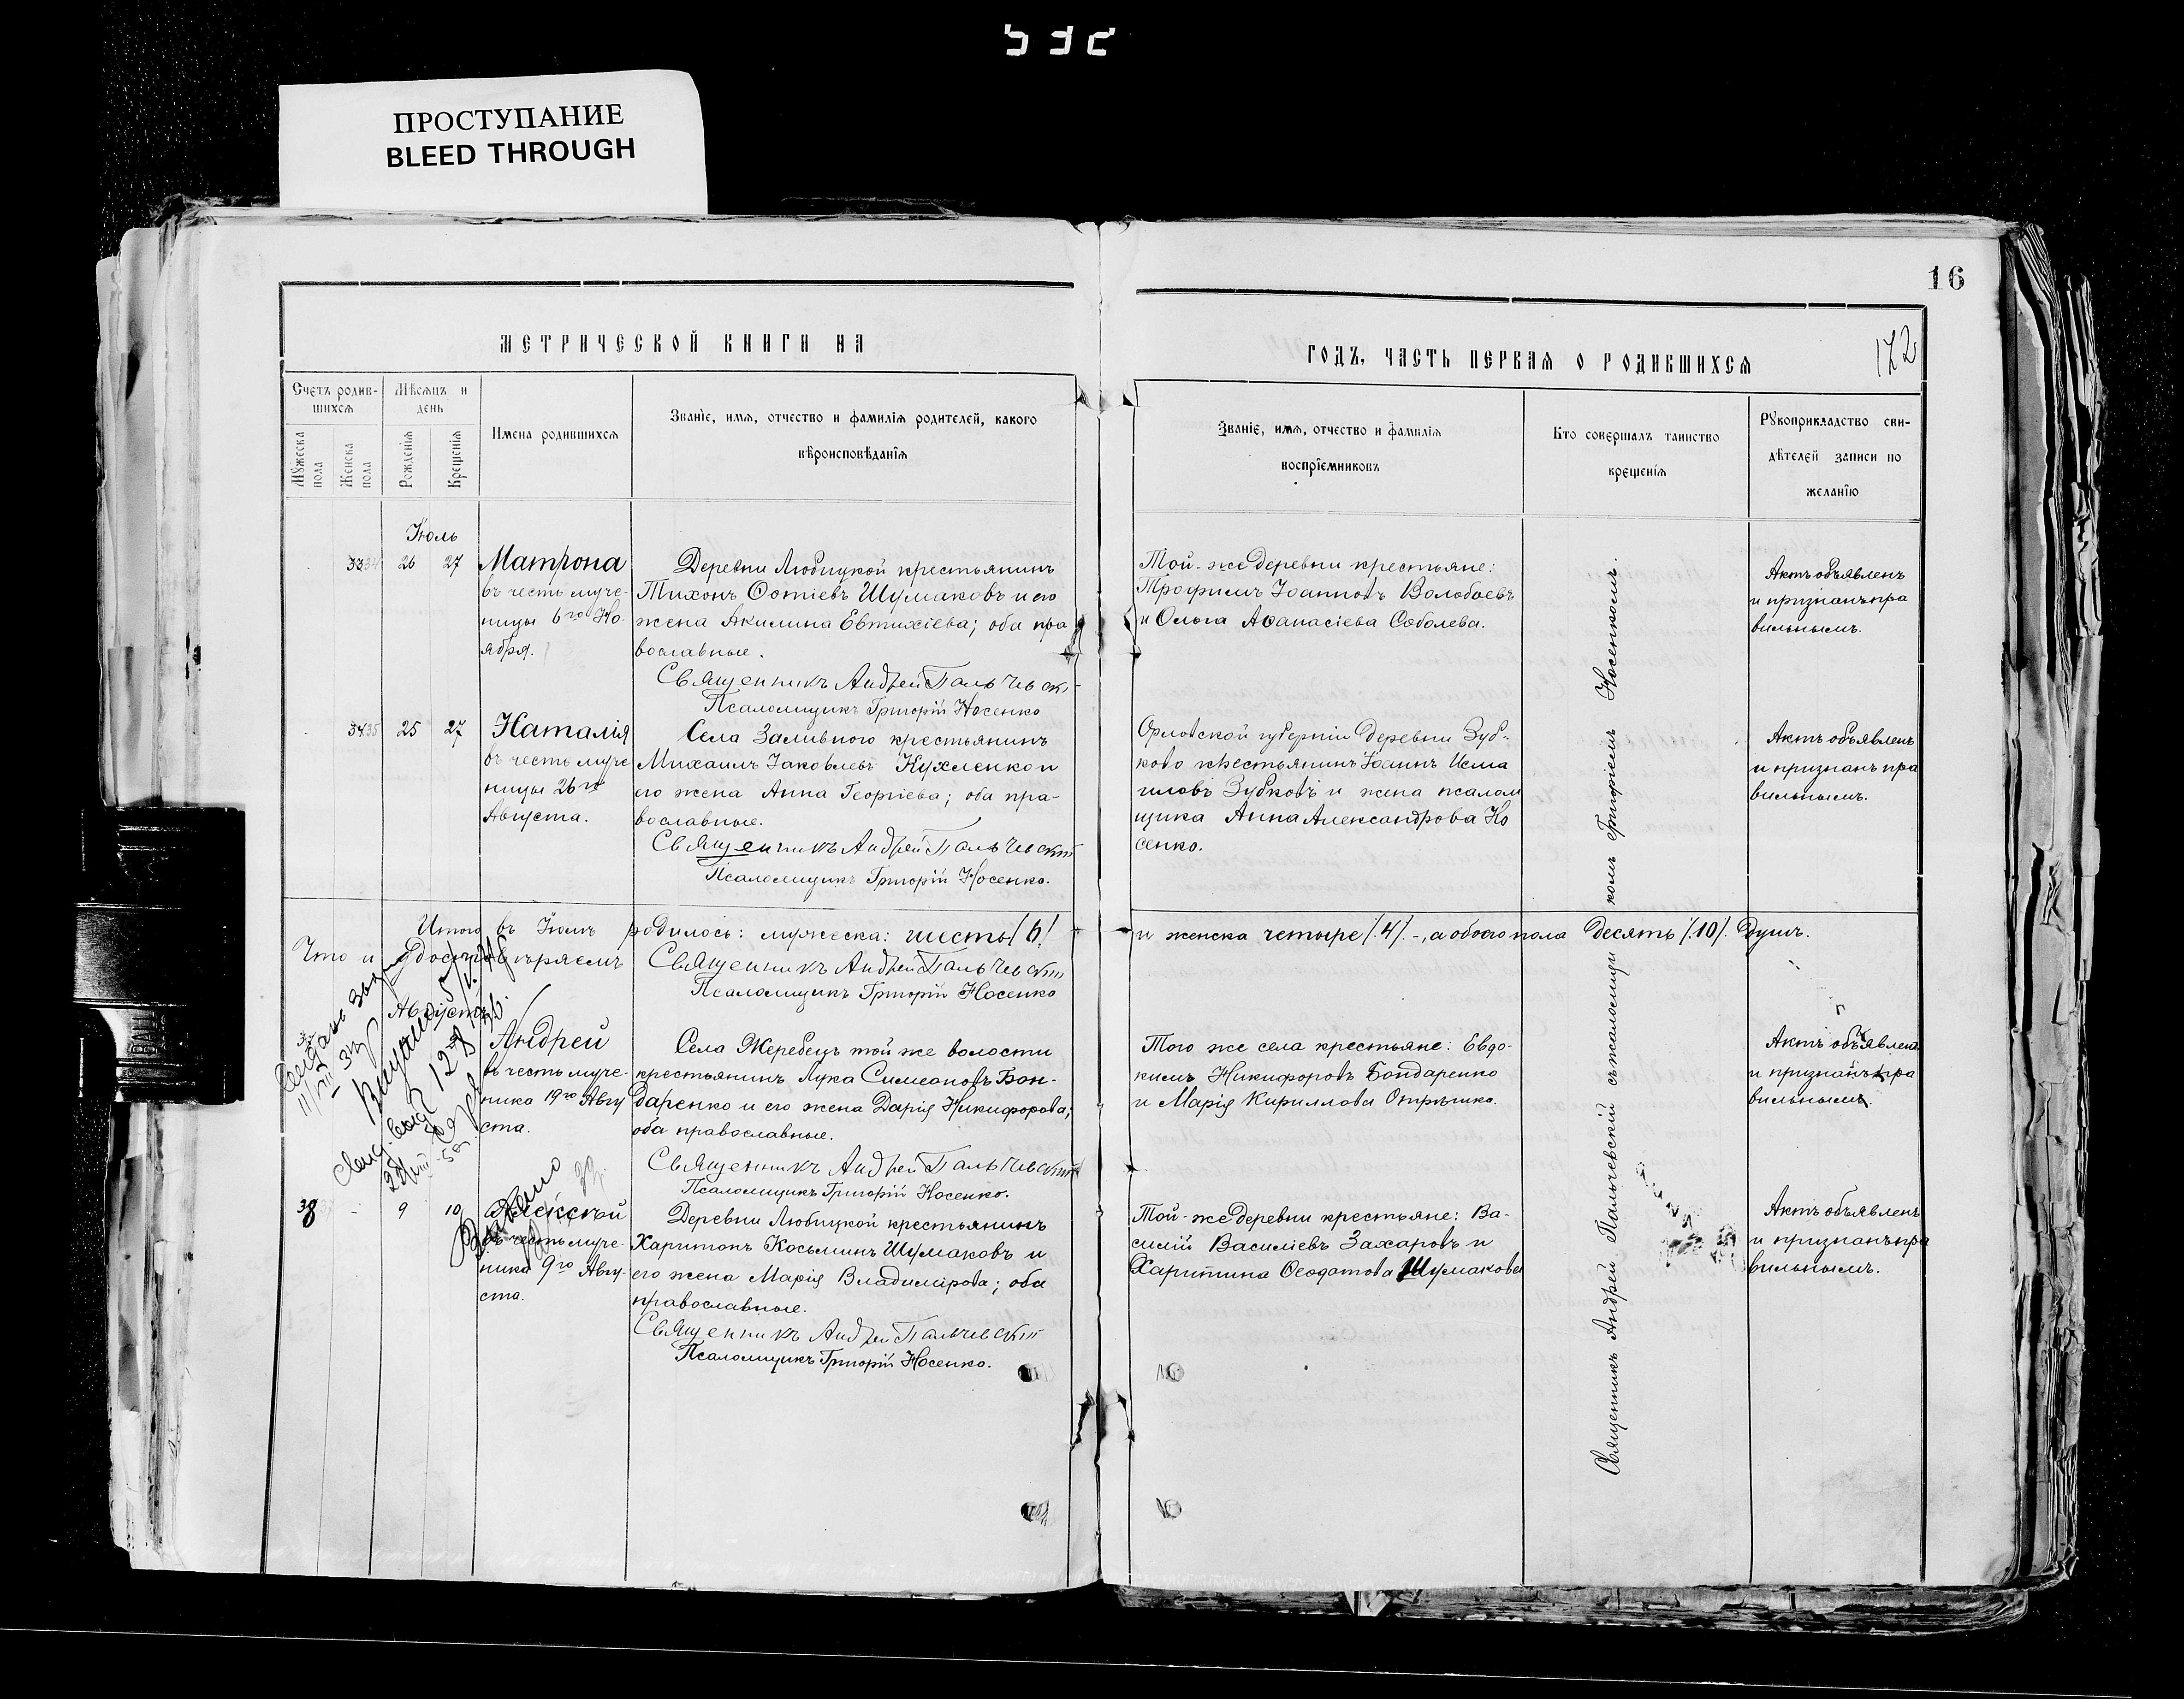 ПРОСТУПАНИЕ
BLEED THROUGH
16
172
МЕТРИЧЕСКОЙ КНИГИ НА
ГОДЪ, ЧАСТЬ ПЕРВАЯ О РОДИВШИХСЯ
Счетъ родив-
шихся
Мѣсяцъ и
день
Мужеска
пола
Женска
пола
Рожденія
Крещенія
Имена родившихся
Званіе, имя, отчество и фамилія родителей, какого
вѣроисповѣданія
Званіе, имя, отчество и фамилія
воспріемниковъ
Кто совершалъ таинство
крещенія
Рукоприкладство сви-
дѣтелей записи по
желанію
Іюль
26 27
Матрона
въ честь муче-
ницы 6го Но-
ября.
Деревни Любицкой крестьянинъ
Тихонъ Ѳотіевъ Шумаковъ и его
жена Акилина Евтихіева; оба пра
вославные.
Священникъ Андрей Пальчевскі
Псаломщикъ Григорій Носенко
Той-же деревни крестьяне:
Трофимъ Іоанновъ Волобоевъ
и Ольга Аѳанасіева Соболева.
Актъ объявленъ
и признанъ пра
вильнымъ.
25 27
Наталія
въ честь муче
ницы 26го
Августа.
Села Заливного крестьянинъ
Михаилъ Іаковлевъ Кухленко и
его жена Анна Георгіева; оба пра-
вославные.
Священникъ Андрей Пальчевскій
Псаломщикъ Григорій Носенко.
Орловской губерніи деревни Зуб-
ково крестьянинъ Іоаннъ Исма
иловъ Зубковъ и жена псалом
щика Анна Александрова Но
сенко.
Актъ объявленъ
и признанъ пра
вильнымъ.
Итого въ Іюлѣ родилось: мужеска: шесть /6/
и женска четыре /.4/. -, а обоего пола десять /.10/. душъ.
Что и удостовѣряемъ
Священникъ Андрей Пальчевскій
Псаломщикъ Григорій Носенко
Августъ
Андрей
въ честь муче-
ника 19го Авгу
ста.
Села Жеребецъ той же волости
крестьянинъ Лука Симеоновъ Бон-
даренко и его жена Дарія Никифорова;
оба православные.
Священникъ Андрей Пальчевскій
Псаломщикъ Григорій Носенко.
Того же села крестьяне: Евдо-
кимъ Никифоровъ Бондаренко
и Марія Кириллова Отрѣшко.
Актъ объявленъ
и признанъ пра
вильнымъ.
38
9 10
Алексѣй
въ честь муче-
ника 9го Авгу-
ста.
Деревни Любицкой крестьянинъ
Харитонъ Косьминъ Шумаковъ и
его жена Марія Владимірова; оба
православные.
Священникъ Андрей Пальчевскій
Псаломщикъ Григорій Носенко.
Той-же деревни крестьяне: Ва-
силій Василіевъ Захаровъ и
Харитина Ѳеодотова Шумакова
Актъ объявленъ
и признанъ пра
вильнымъ.
Священникъ Андрей Пальчевскій съ псаломщикомъ Григоріемъ Носенкомъ.